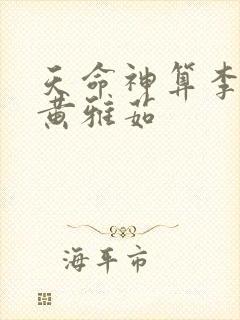 天命神算李
黄雅茹
海平市